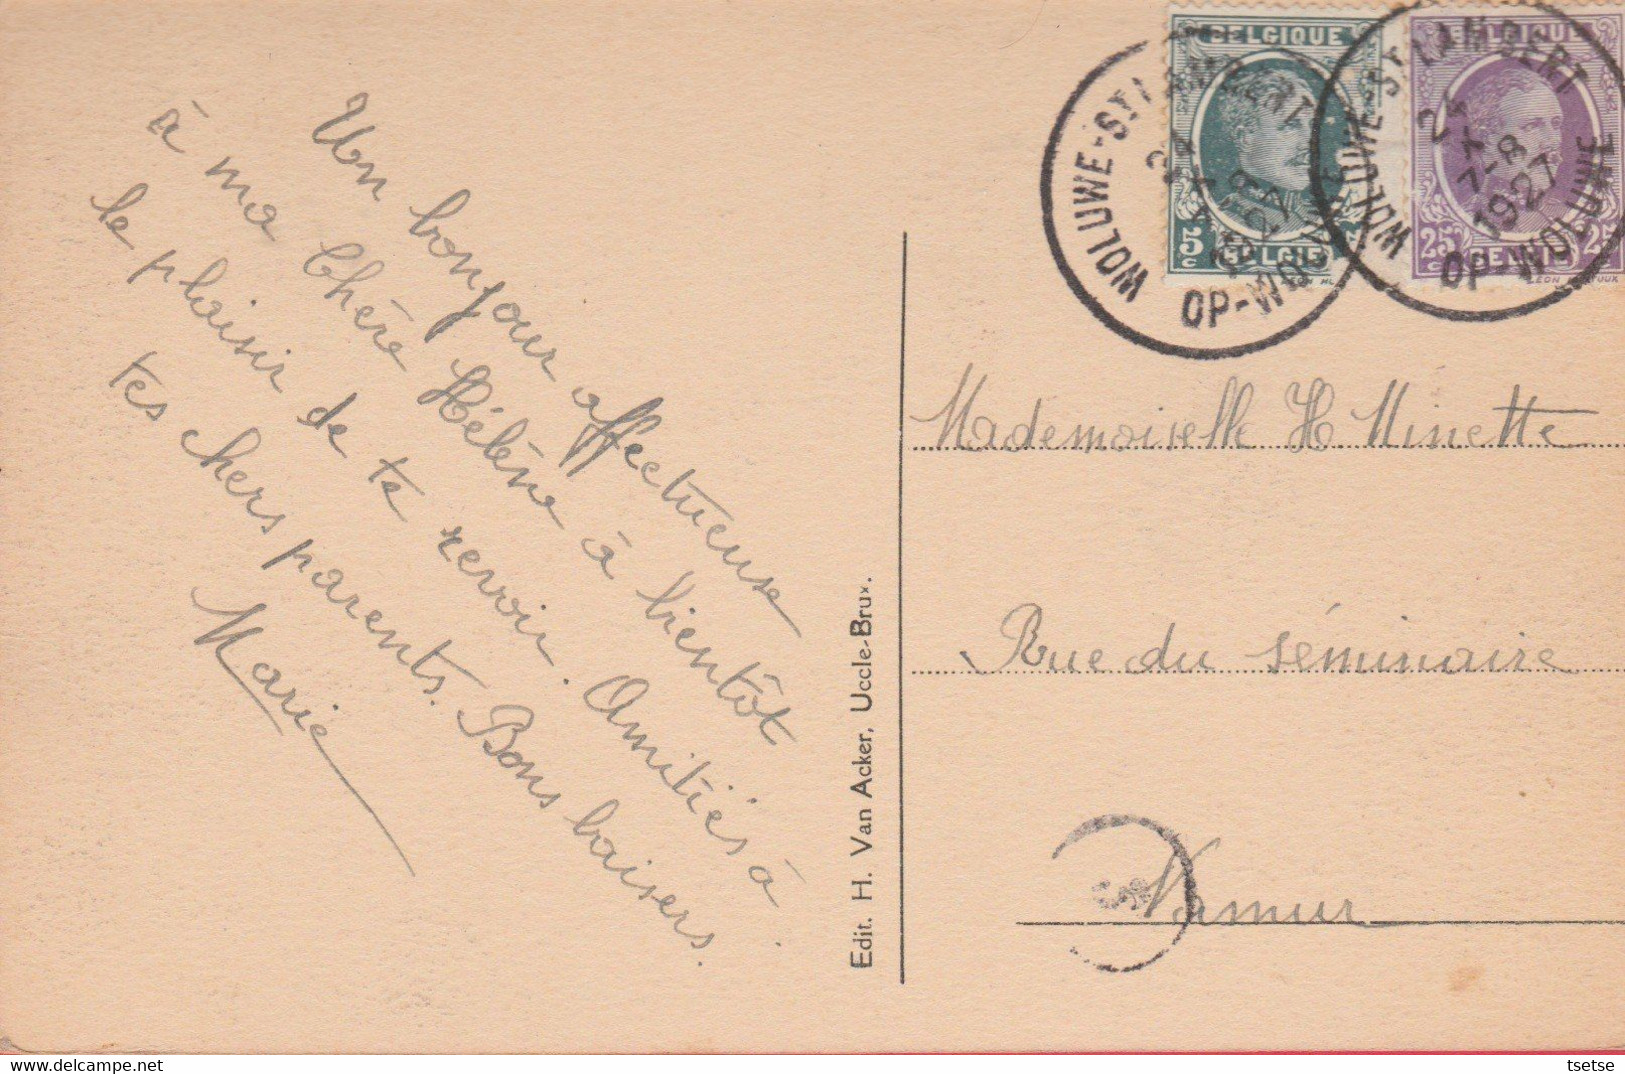 Un bonjour affectueuse
à ma Chère Hélène à bientôt
le plaisir de te revoir. Amitiés à
tes chers parents. Bons baisers.
Marie
Edit. H. Van Acker, Uccle-Brux.
BELGIQUE
5c
BELGIE
WOLUWE-ST LAMBERT
1927
OP-WOLUWE
BELGIQUE
25c
25
WOLUWE-ST LAMBERT
24
7-8
1927
OP-WOLUWE
Mademoiselle H. Minette
Rue du séminaire
Namur
tsetse